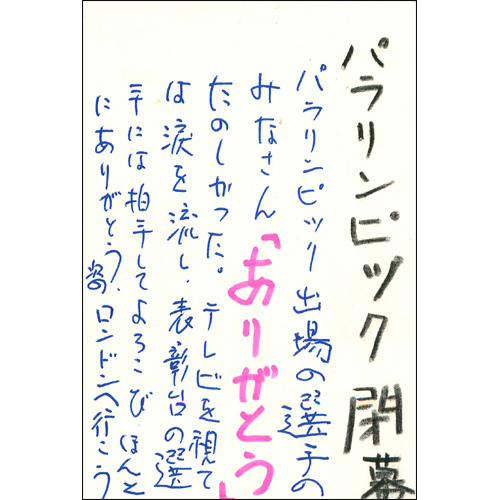 パラリンピック 閉幕
パラリンピック出場の選手の
みなさん「ありがとう」
たのしかった。テレビを視て
は涙を流し、表彰台の選
手には拍手してよろこび ほんと
にありがとう、
ロンドンへ行こう